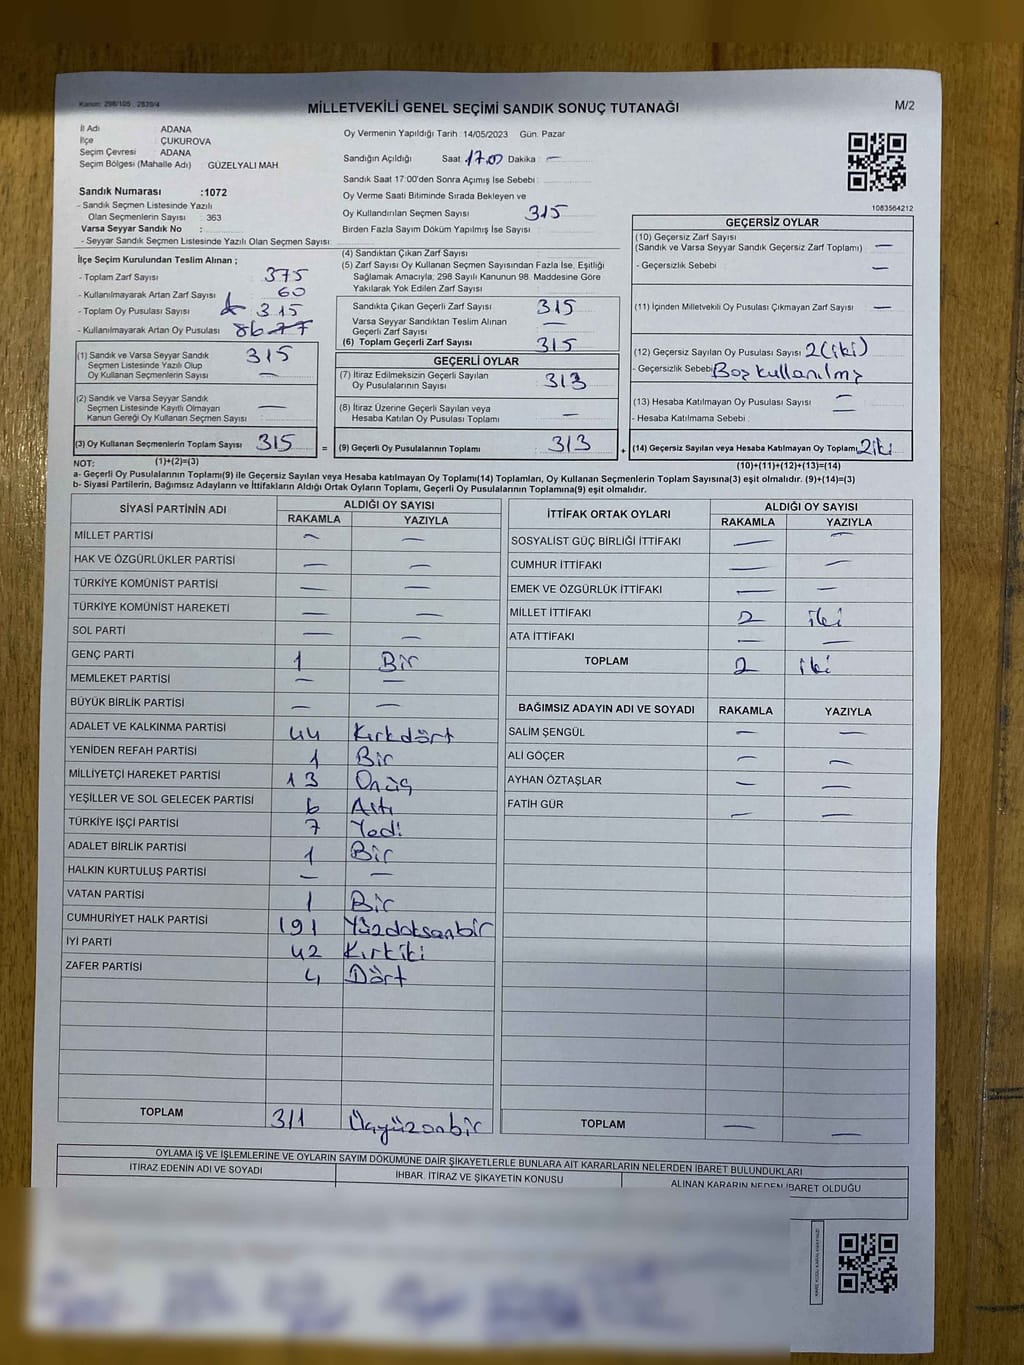 Kanun: 298/105 , 2839/4
MİLLETVEKİLİ GENEL SEÇİMİ SANDIK SONUÇ TUTANAĞI
M/2
İl Adı ADANA
İlçe ÇUKUROVA
Seçim Çevresi ADANA
Seçim Bölgesi (Mahalle Adı) : GÜZELYALI MAH.
Oy Vermenin Yapıldığı Tarih : 14/05/2023 Gün: Pazar
Sandığın Açıldığı Saat : 17.00 Dakika : —
Sandık Saat 17:00'den Sonra Açımış İse Sebebi :
Oy Verme Saati Bitiminde Sırada Bekleyen ve
Oy Kullandırılan Seçmen Sayısı 315
Birden Fazla Sayım Döküm Yapılmış İse Sayısı :
1083564212
Sandık Numarası :1072
- Sandık Seçmen Listesinde Yazılı
Olan Seçmenlerin Sayısı : 363
Varsa Seyyar Sandık No :
- Seyyar Sandık Seçmen Listesinde Yazılı Olan Seçmen Sayısı:
İlçe Seçim Kurulundan Teslim Alınan ;
- Toplam Zarf Sayısı 375
- Kullanılmayarak Artan Zarf Sayısı 60
- Toplam Oy Pusulası Sayısı 315
- Kullanılmayarak Artan Oy Pusulası
(1) Sandık ve Varsa Seyyar Sandık
Seçmen Listesinde Yazılı Olup
Oy Kullanan Seçmenlerin Sayısı 315 —
(2) Sandık ve Varsa Seyyar Sandık
Seçmen Listesinde Kayıtlı Olmayan
Kanun Gereği Oy Kullanan Seçmen Sayısı —
(3) Oy Kullanan Seçmenlerin Toplam Sayısı 315 =
(1)+(2)=(3)
(4) Sandıktan Çıkan Zarf Sayısı
(5) Zarf Sayısı Oy Kullanan Seçmen Sayısından Fazla İse, Eşitliği
Sağlamak Amacıyla; 298 Sayılı Kanunun 98. Maddesine Göre
Yakılarak Yok Edilen Zarf Sayısı :
Sandıkta Çıkan Geçerli Zarf Sayısı 315
Varsa Seyyar Sandıktan Teslim Alınan
Geçerli Zarf Sayısı —
(6) Toplam Geçerli Zarf Sayısı 315
GEÇERLİ OYLAR
(7) İtiraz Edilmeksizin Geçerli Sayılan
Oy Pusulalarının Sayısı 313
(8) İtiraz Üzerine Geçerli Sayılan veya
Hesaba Katılan Oy Pusulası Toplamı —
(9) Geçerli Oy Pusulalarının Toplamı 313 +
GEÇERSİZ OYLAR
(10) Geçersiz Zarf Sayısı
(Sandık ve Varsa Seyyar Sandık Geçersiz Zarf Toplamı) —
- Geçersizlik Sebebi : —
(11) İçinden Milletvekili Oy Pusulası Çıkmayan Zarf Sayısı —
(12) Geçersiz Sayılan Oy Pusulası Sayısı 2 (iki)
- Geçersizlik Sebebi Boş kullanılmış
(13) Hesaba Katılmayan Oy Pusulası Sayısı —
- Hesaba Katılmama Sebebi : —
(14) Geçersiz Sayılan veya Hesaba Katılmayan Oy Toplamı 2 iki
(10)+(11)+(12)+(13)=(14)
NOT:
a- Geçerli Oy Pusulalarının Toplamı(9) ile Geçersiz Sayılan veya Hesaba katılmayan Oy Toplamı(14) Toplamları, Oy Kullanan Seçmenlerin Toplam Sayısına(3) eşit olmalıdır. (9)+(14)=(3)
b- Siyasi Partilerin, Bağımsız Adayların ve İttifakların Aldığı Ortak Oyların Toplamı, Geçerli Oy Pusulalarının Toplamına(9) eşit olmalıdır.
SİYASİ PARTİNİN ADI ALDIĞI OY SAYISI
RAKAMLA YAZIYLA
MİLLET PARTİSİ — —
HAK VE ÖZGÜRLÜKLER PARTİSİ — —
TÜRKİYE KOMÜNİST PARTİSİ — —
TÜRKİYE KOMÜNİST HAREKETİ — —
SOL PARTİ — —
GENÇ PARTİ 1 Bir
MEMLEKET PARTİSİ — —
BÜYÜK BİRLİK PARTİSİ — —
ADALET VE KALKINMA PARTİSİ 44 Kırkdört
YENİDEN REFAH PARTİSİ 1 Bir
MİLLİYETÇİ HAREKET PARTİSİ 13 Onüç
YEŞİLLER VE SOL GELECEK PARTİSİ 6 Altı
TÜRKİYE İŞÇİ PARTİSİ 7 Yedi
ADALET BİRLİK PARTİSİ 1 Bir
HALKIN KURTULUŞ PARTİSİ — —
VATAN PARTİSİ 1 Bir
CUMHURİYET HALK PARTİSİ 191 Yüzdoksanbir
İYİ PARTİ 42 Kırkiki
ZAFER PARTİSİ 4 Dört
TOPLAM 311 Üçyüzonbir
İTTİFAK ORTAK OYLARI ALDIĞI OY SAYISI
RAKAMLA YAZIYLA
SOSYALİST GÜÇ BİRLİĞİ İTTİFAKI — —
CUMHUR İTTİFAKI — —
EMEK VE ÖZGÜRLÜK İTTİFAKI — —
MİLLET İTTİFAKI 2 iki
ATA İTTİFAKI — —
TOPLAM 2 iki
BAĞIMSIZ ADAYIN ADI VE SOYADI RAKAMLA YAZIYLA
SALİM ŞENGÜL — —
ALİ GÖÇER — —
AYHAN ÖZTAŞLAR — —
FATİH GÜR — —
TOPLAM — —
OYLAMA İŞ VE İŞLEMLERİNE VE OYLARIN SAYIM DÖKÜMÜNE DAİR ŞİKAYETLERLE BUNLARA AİT KARARLARIN NELERDEN İBARET BULUNDUKLARI
İTİRAZ EDENİN ADI VE SOYADI İHBAR, İTİRAZ VE ŞİKAYETİN KONUSU ALINAN KARARIN NEDEN İBARET OLDUĞU